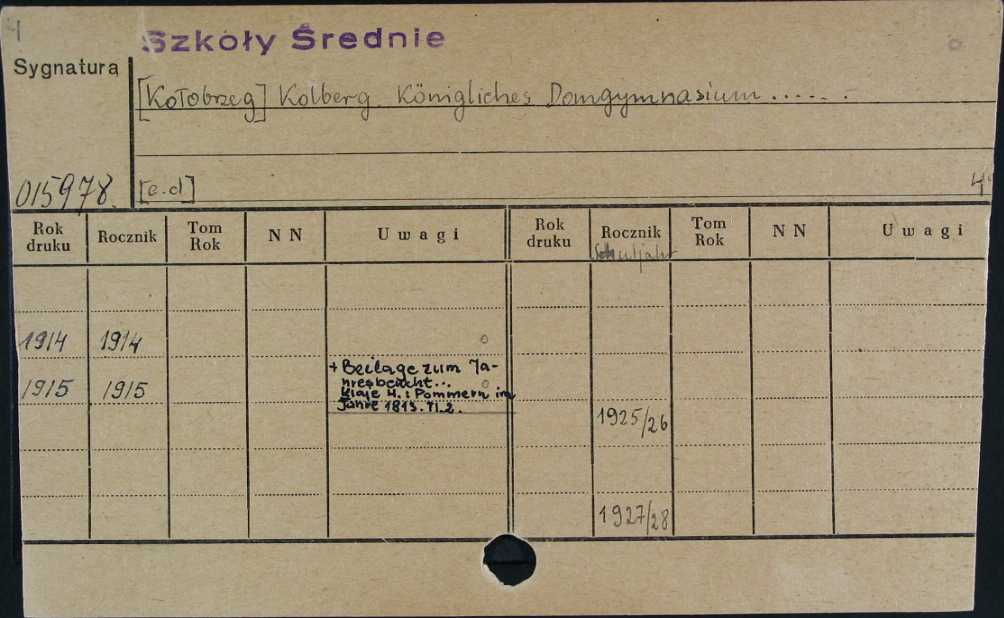 4
Szkoły Średnie
Sygnatura
[Kołobrzeg] Kolberg. Königliches Domgymnasium......
015978.
[c.d]
4°
Rok druku Rocznik Tom Rok N N Uwagi Rok druku Rocznik Tom Rok N N Uwagi
Schuljahr
1914 1914
1915 1915
+ Beilage zum Ja-
hresbericht...
Klaje H.: Pommern im
Jahre 1813. Tl.2.
1925/26
1927/28